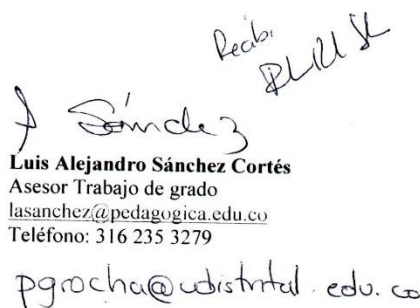 Recibi
Sánchez
Luis Alejandro Sánchez Cortés
Asesor Trabajo de grado
lasanchez@pedagogica.edu.co
Teléfono: 316 235 3279
pgrocha@udistrital.edu.co